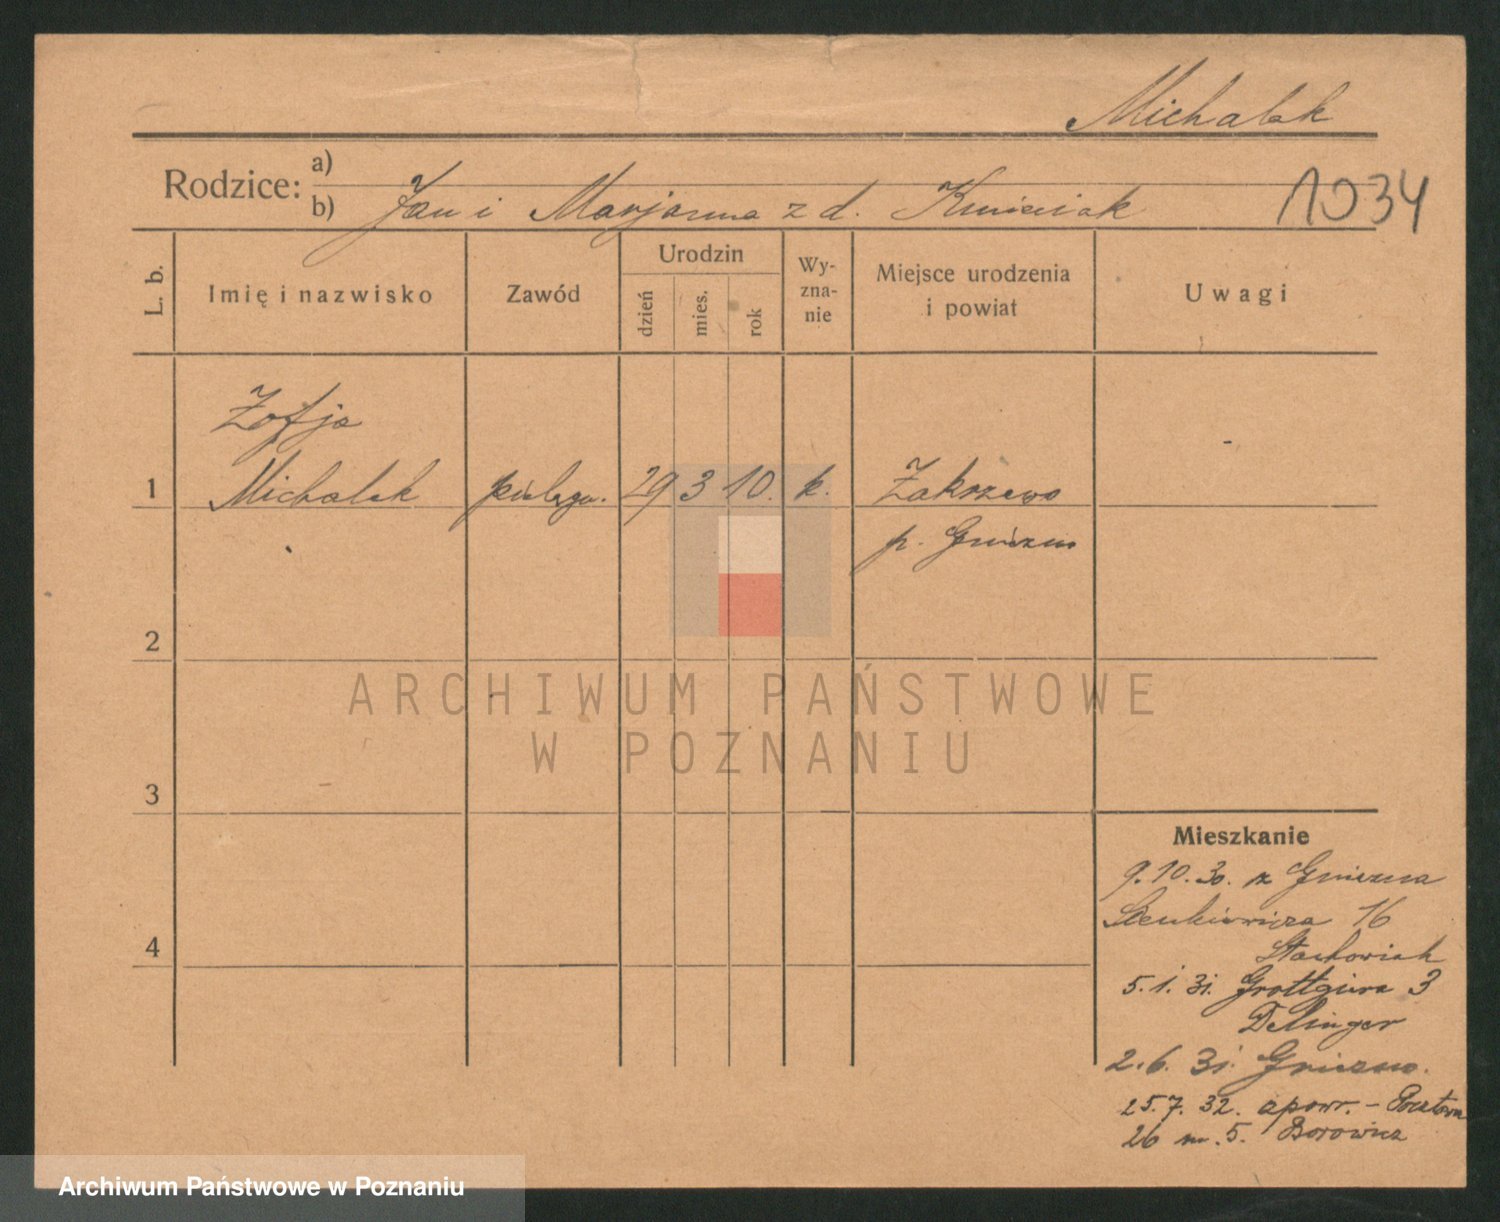 Michalak
Rodzice: a)
b) Jan i Marjanna z d. Kmieciak
1034
L. b.
Imię i nazwisko
Zawód
Urodzin
dzień
mies.
rok
Wy-
zna-
nie
Miejsce urodzenia
i powiat
Uwagi
Zofja
1 Michalak pielęgn. 29 3 10. k. Zakrzewo
p. Gniezno
2
3
4
ARCHIWUM PAŃSTWOWE
W POZNANIU
Mieszkanie
9.10.30. z Gniezna
Sienkiewicza 16
Stachowiak
5.1.31. Grottgiera 3
Delinger
2.6.31. Gniezno.
25.7.32. spowr. - Pocztowa
26 m. 5. Borowicz
Archiwum Państwowe w Poznaniu